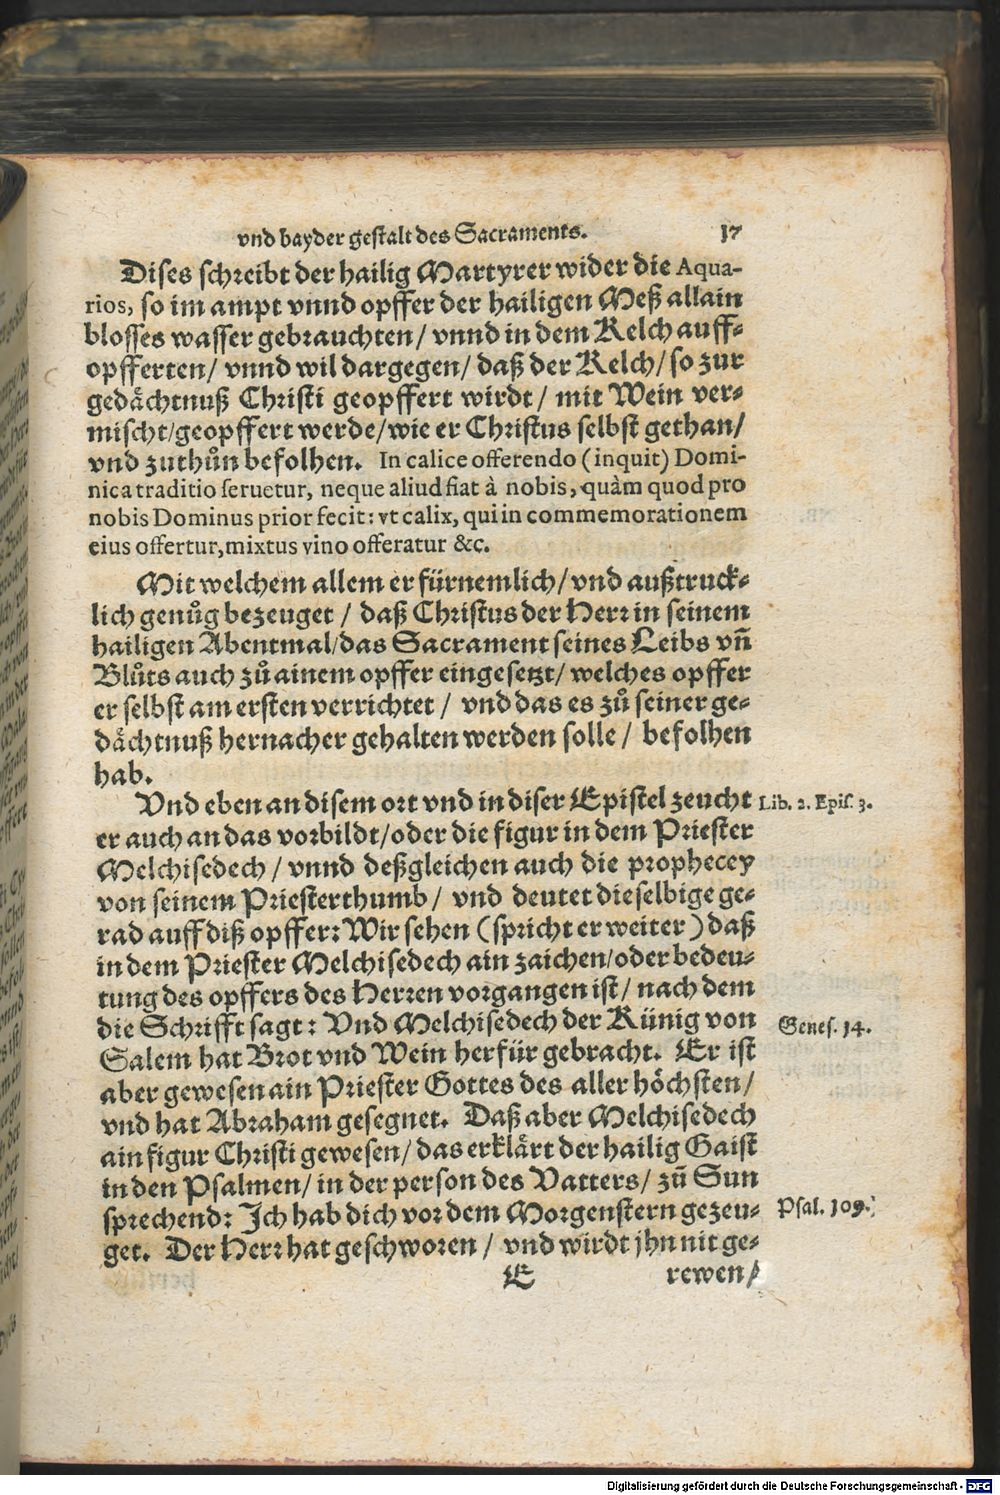 vnd bayder gestalt des Sacraments. 17
Dises schreibt der hailig Martyrer wider die Aqua-
rios, so im ampt vnnd opffer der hailigen Meß allain
blosses wasser gebrauchten / vnnd in dem Kelch auff-
opfferten / vnnd wil dargegen / daß der Kelch / so zur
gedaͤchtnuß Christi geopffert wirdt / mit Wein ver-
mischt / geopffert werde / wie er Christus selbst gethan /
vnd zuthuͦn befolhen. In calice offerendo (inquit) Domi-
nica traditio seruetur, neque aliud fiat à nobis, quàm quod pro
nobis Dominus prior fecit: vt calix, qui in commemorationem
eius offertur, mixtus vino offeratur &c.
Mit welchem allem er fürnemlich / vnd außtruck-
lich genuͦg bezeuget / daß Christus der Herr in seinem
hailigen Abentmal / das Sacrament seines Leibs vn̄
Bluͦts auch zuͦ ainem opffer eingesetzt / welches opffer
er selbst am ersten verrichtet / vnd das es zuͦ seiner ge-
daͤchtnuß hernacher gehalten werden solle / befolhen
hab.
Vnd eben an disem ort vnd in diser Epistel zeucht Lib. 2. Epis. 3.
er auch an das vorbildt / oder die figur in dem Priester
Melchisedech / vnnd deßgleichen auch die prophecey
von seinem Priesterthumb / vnd deutet dieselbige ge-
rad auff diß opffer: Wir sehen (spricht er weiter) daß
in dem Priester Melchisedech ain zaichen / oder bedeu-
tung des opffers des Herren vorgangen ist / nach dem
die Schrifft sagt: Vnd Melchisedech der Künig von Genes. 14.
Salem hat Brot vnd Wein herfür gebracht. Er ist
aber gewesen ain Priester Gottes des aller hoͤchsten /
vnd hat Abraham gesegnet. Daß aber Melchisedech
ain figur Christi gewesen / das erklaͤrt der hailig Gaist
in den Psalmen / in der person des Vatters / zuͦ̄ Sun
sprechend: Ich hab dich vor dem Morgenstern gezeu- Psal. 109.
get. Der Herr hat geschworen / vnd wirdt jhn nit ge-
E rewen /
Digitalisierung gefördert durch die Deutsche Forschungsgemeinschaft - DFG